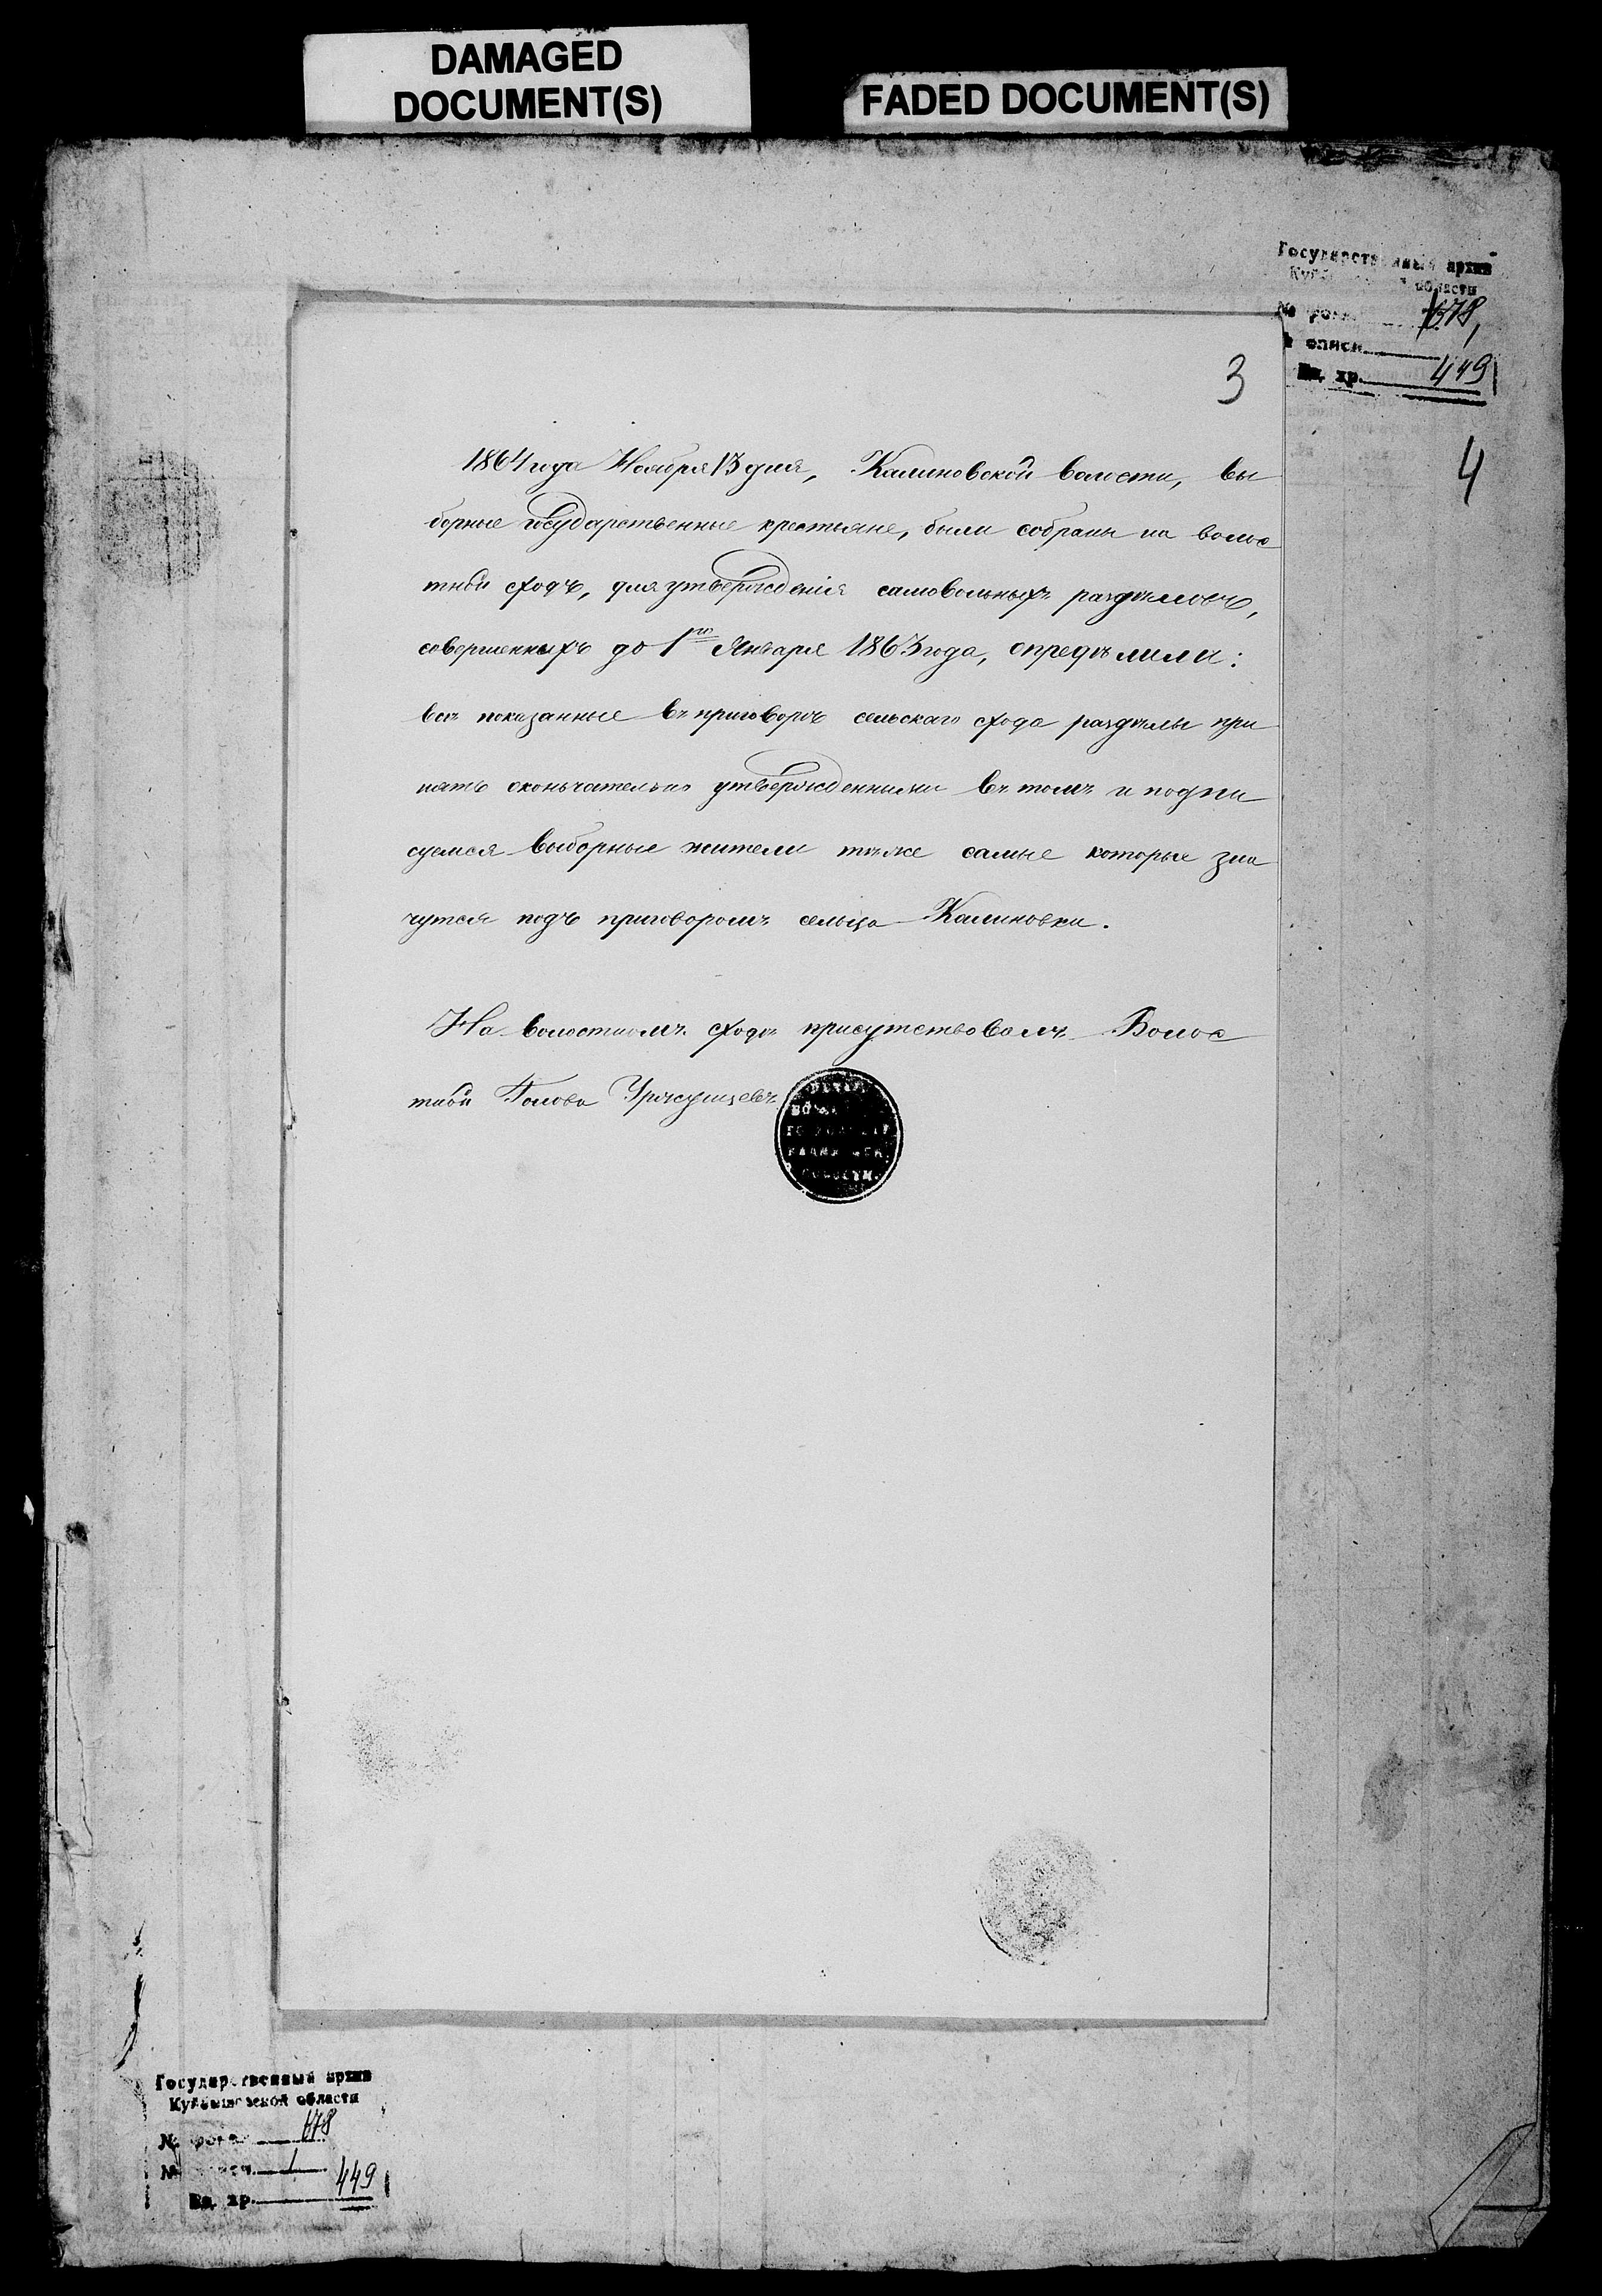 DAMAGED
DOCUMENT(S)
FADED DOCUMENT(S)
Государственный архив
области
678,
описи
Ед. хр. 449
3
4
1864 года Ноября 13 дня, Калиновской волости, вы
борные государственные крестьяне, были собраны на волос
тной сходъ, для утвержденія самовольныхъ раздѣловъ,
совершенныхъ до 1го Января 1863 года, опредѣлили:
всѣ показанные въ приговорѣ сельскаго схода раздѣлы при
нять окончательно утвержденными въ томъ и подпи
суемся выборные жители тѣже самые которые зна
чутся подъ приговоромъ сельца Калиновки.
На волостномъ сходѣ присутствовалъ Волос
тной Голова
Государственный архив
Куйбышевской области
№ фонда 678
№ 1
Ед. хр. 449